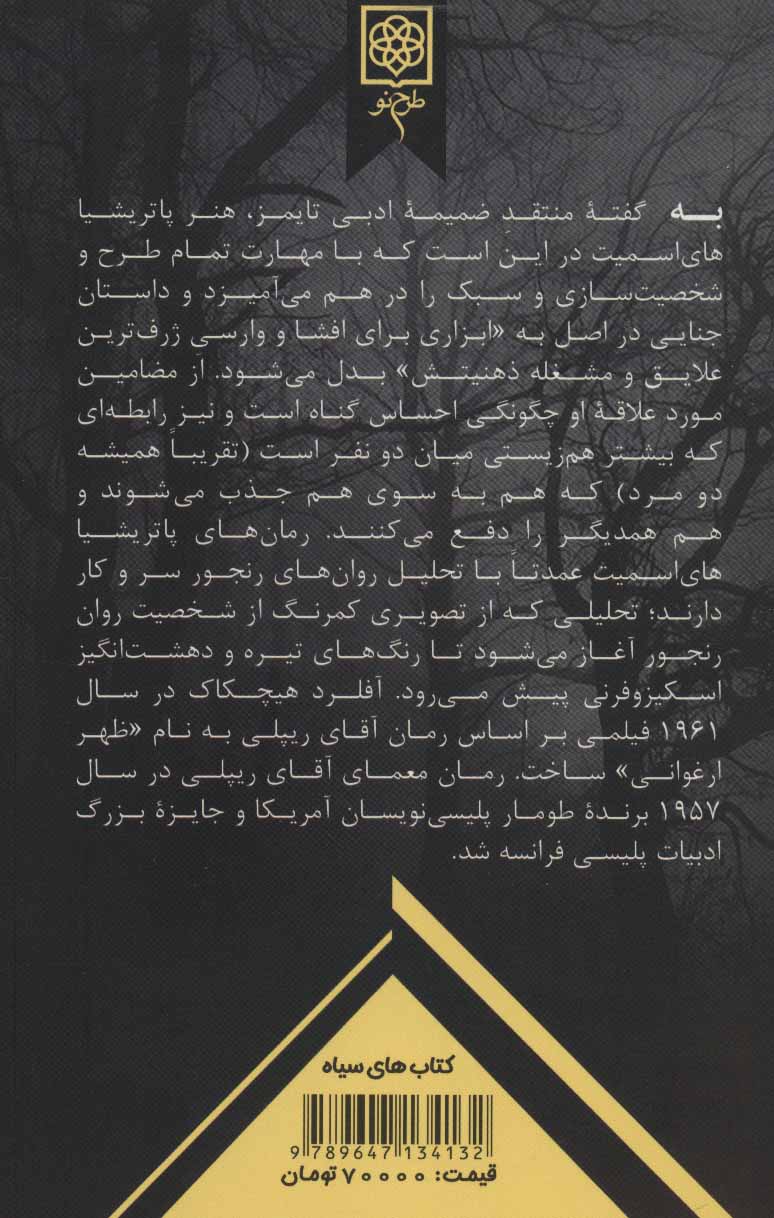 طرح نو
به گفتهٔ منتقدِ ضمیمهٔ ادبی تایمز، هنر پاتریشیا
های‌اسمیت در این است که با مهارت تمام طرح و
شخصیت‌سازی و سبک را در هم می‌آمیزد و داستان
جنایی در اصل به «ابزاری برای افشا و وارسیِ ژرف‌ترین
علایق و مشغله ذهنیتش» بدل می‌شود. از مضامین
مورد علاقهٔ او چگونگی احساس گناه است و نیز رابطه‌ای
که بیشتر هم‌زیستی میان دو نفر است (تقریباً همیشه
دو مرد) که هم به سوی هم جذب می‌شوند و
هم همدیگر را دفع می‌کنند. رمان‌های پاتریشیا
های‌اسمیت عمدتاً با تحلیل روان‌های رنجور سر و کار
دارند؛ تحلیلی که از تصویری کمرنگ از شخصیت روان
رنجور آغاز می‌شود تا رنگ‌های تیره و دهشت‌انگیز
اسکیزوفرنی پیش می‌رود. آفلرد هیچکاک در سال
۱۹۶۱ فیلمی بر اساس رمان آقای ریپلی به نام «ظهر
ارغوانی» ساخت. رمان معمای آقای ریپلی در سال
۱۹۵۷ برندهٔ طومار پلیسی‌نویسان آمریکا و جایزهٔ بزرگ
ادبیات پلیسی فرانسه شد.
کتاب های سیاه
9 789647 134132
قیمت: ۷۰۰۰۰ تومان